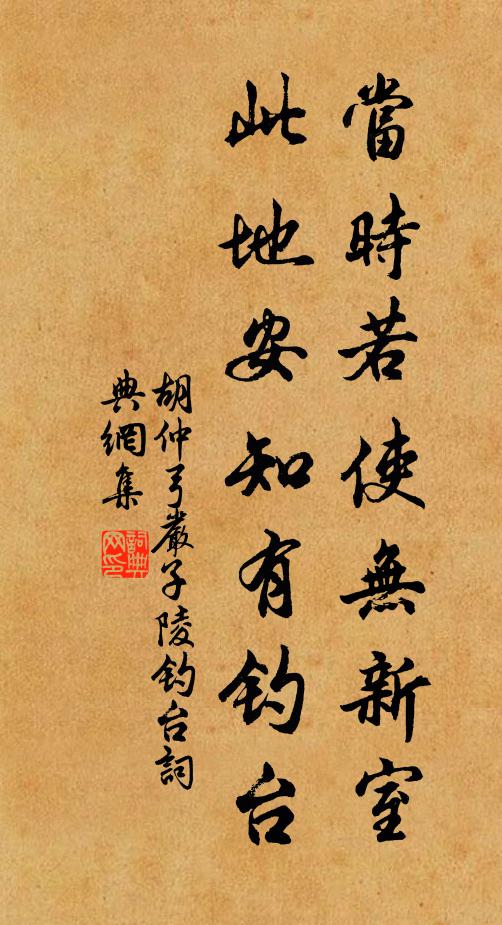 當時若使無新室
此地安知有钓台
胡仲弓嚴子陵钓台詞
典網集
詞典
网印